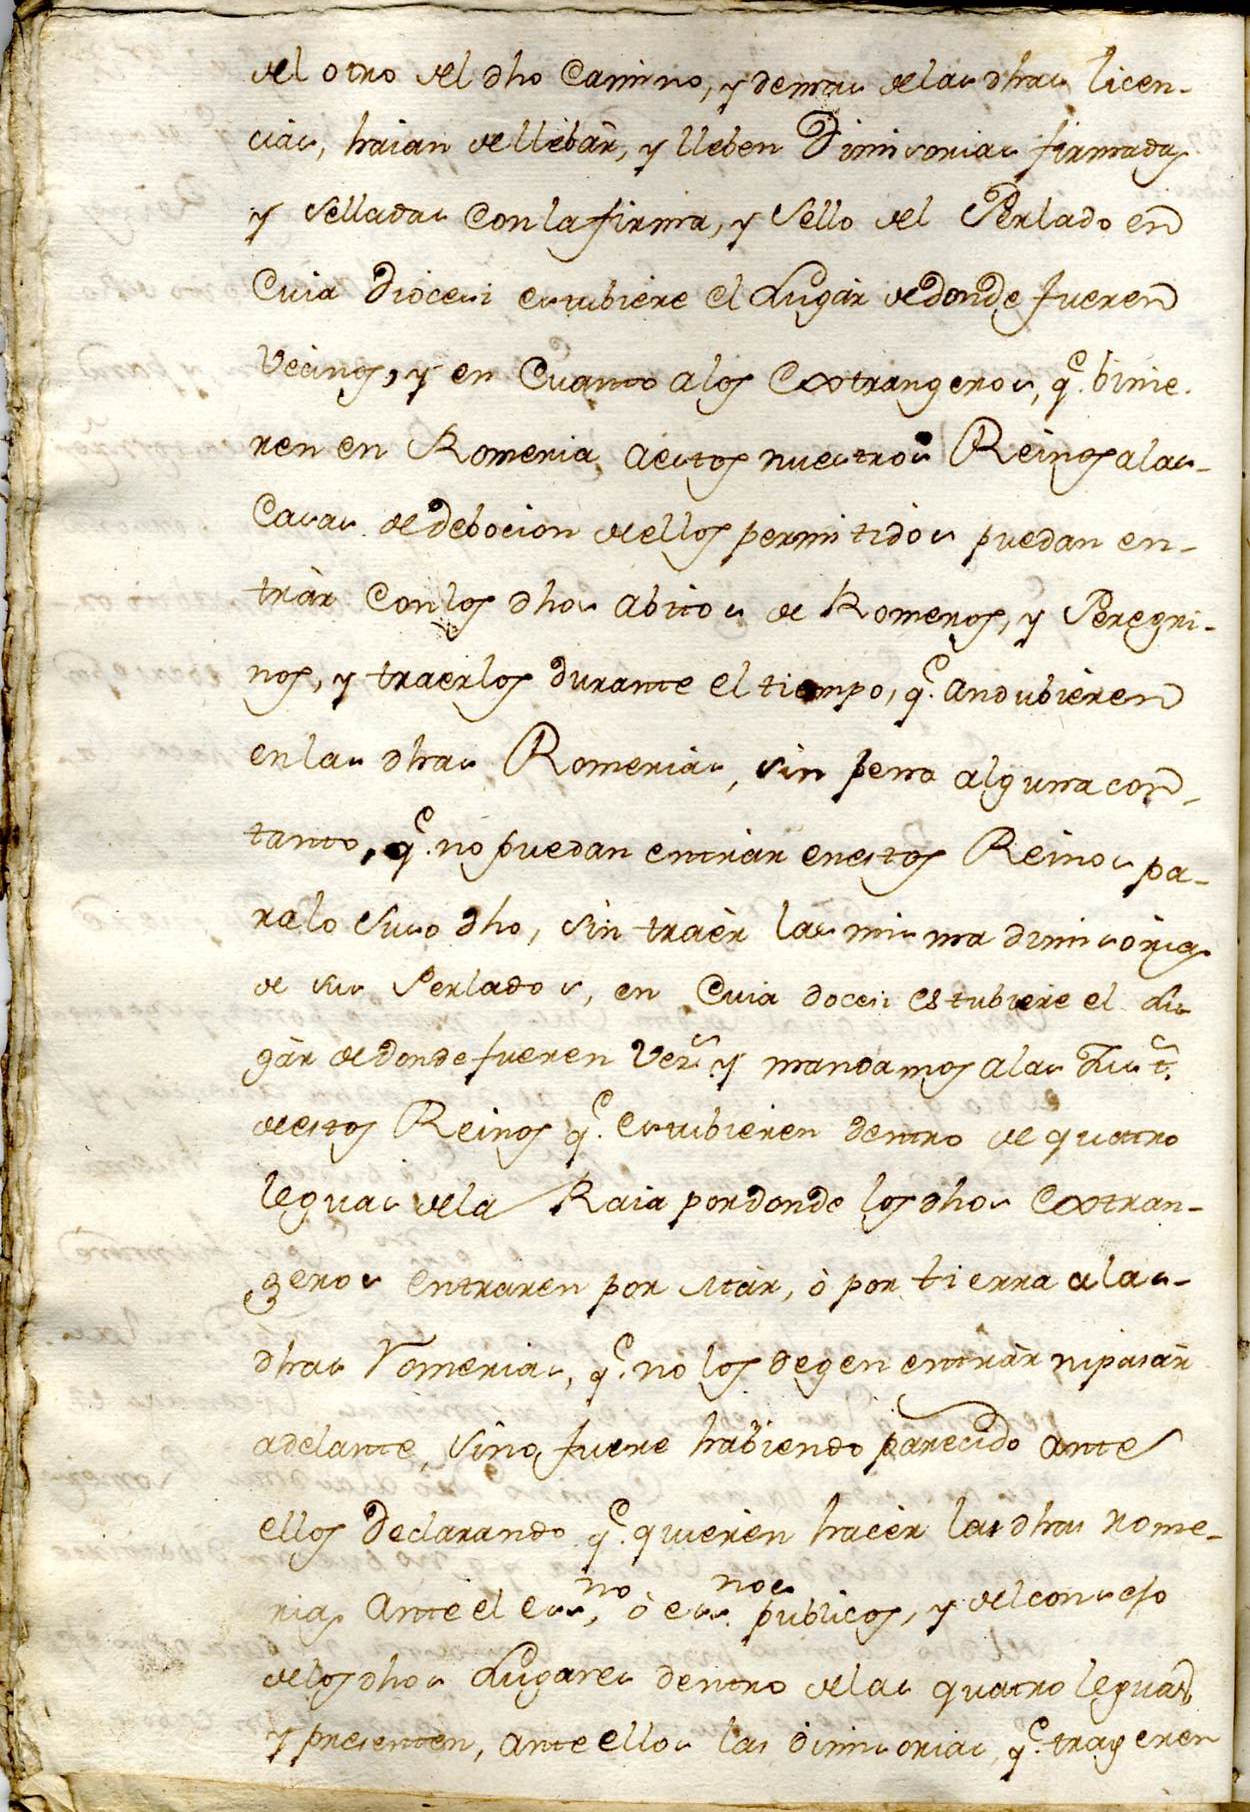 del otro del dho Camino, y demas de las dhas licen-
cias, haian de llebàr, y lleben Dimisorias firmadas
y Selladas Con la firma, y Sello del Perlado en
Cuia Diocesi estubiere el Lugàr de donde fueren
Vecinos, y en Cuanto a los Extrangeros, q.e binie-
ren en Romeria, a estos nuestros Reinos a las-
Casas de debocion de ellos permitidos puedan en-
tràr Con los dhos abitos de Romeros, y Peregri-
nos, y traerlos durante el tiempo, q.e andubieren
en las dhas Romerias, sin pena alguna con-
tanto, q.e no puedan entràr en estos Reinos pa-
ra lo Suso dho, sin traèr las misma dimisorias
de sus Perlados, en Cuia docesi estubiere el Lu-
gàr de donde fueren Vez.s y mandamos a las Just.s
de estos Reinos q.e estubieren dentro de quatro
leguas de la Raia por donde los dhos Extran-
geros entraren por Màr, ò por tierra a las-
dhas Romerias, q.e no los degen entràr ni pasàr
adelante, Sino fuere habiendo parecido ante
ellos Declarando q.e quieren hacèr las dhas rome-
rias ante el ess.no, ò ess.nos publicos, y del consejo
de los dhos Lugares dentro de las quatro leguas
y presenten, ante ellos las dimisorias, q.e trageren